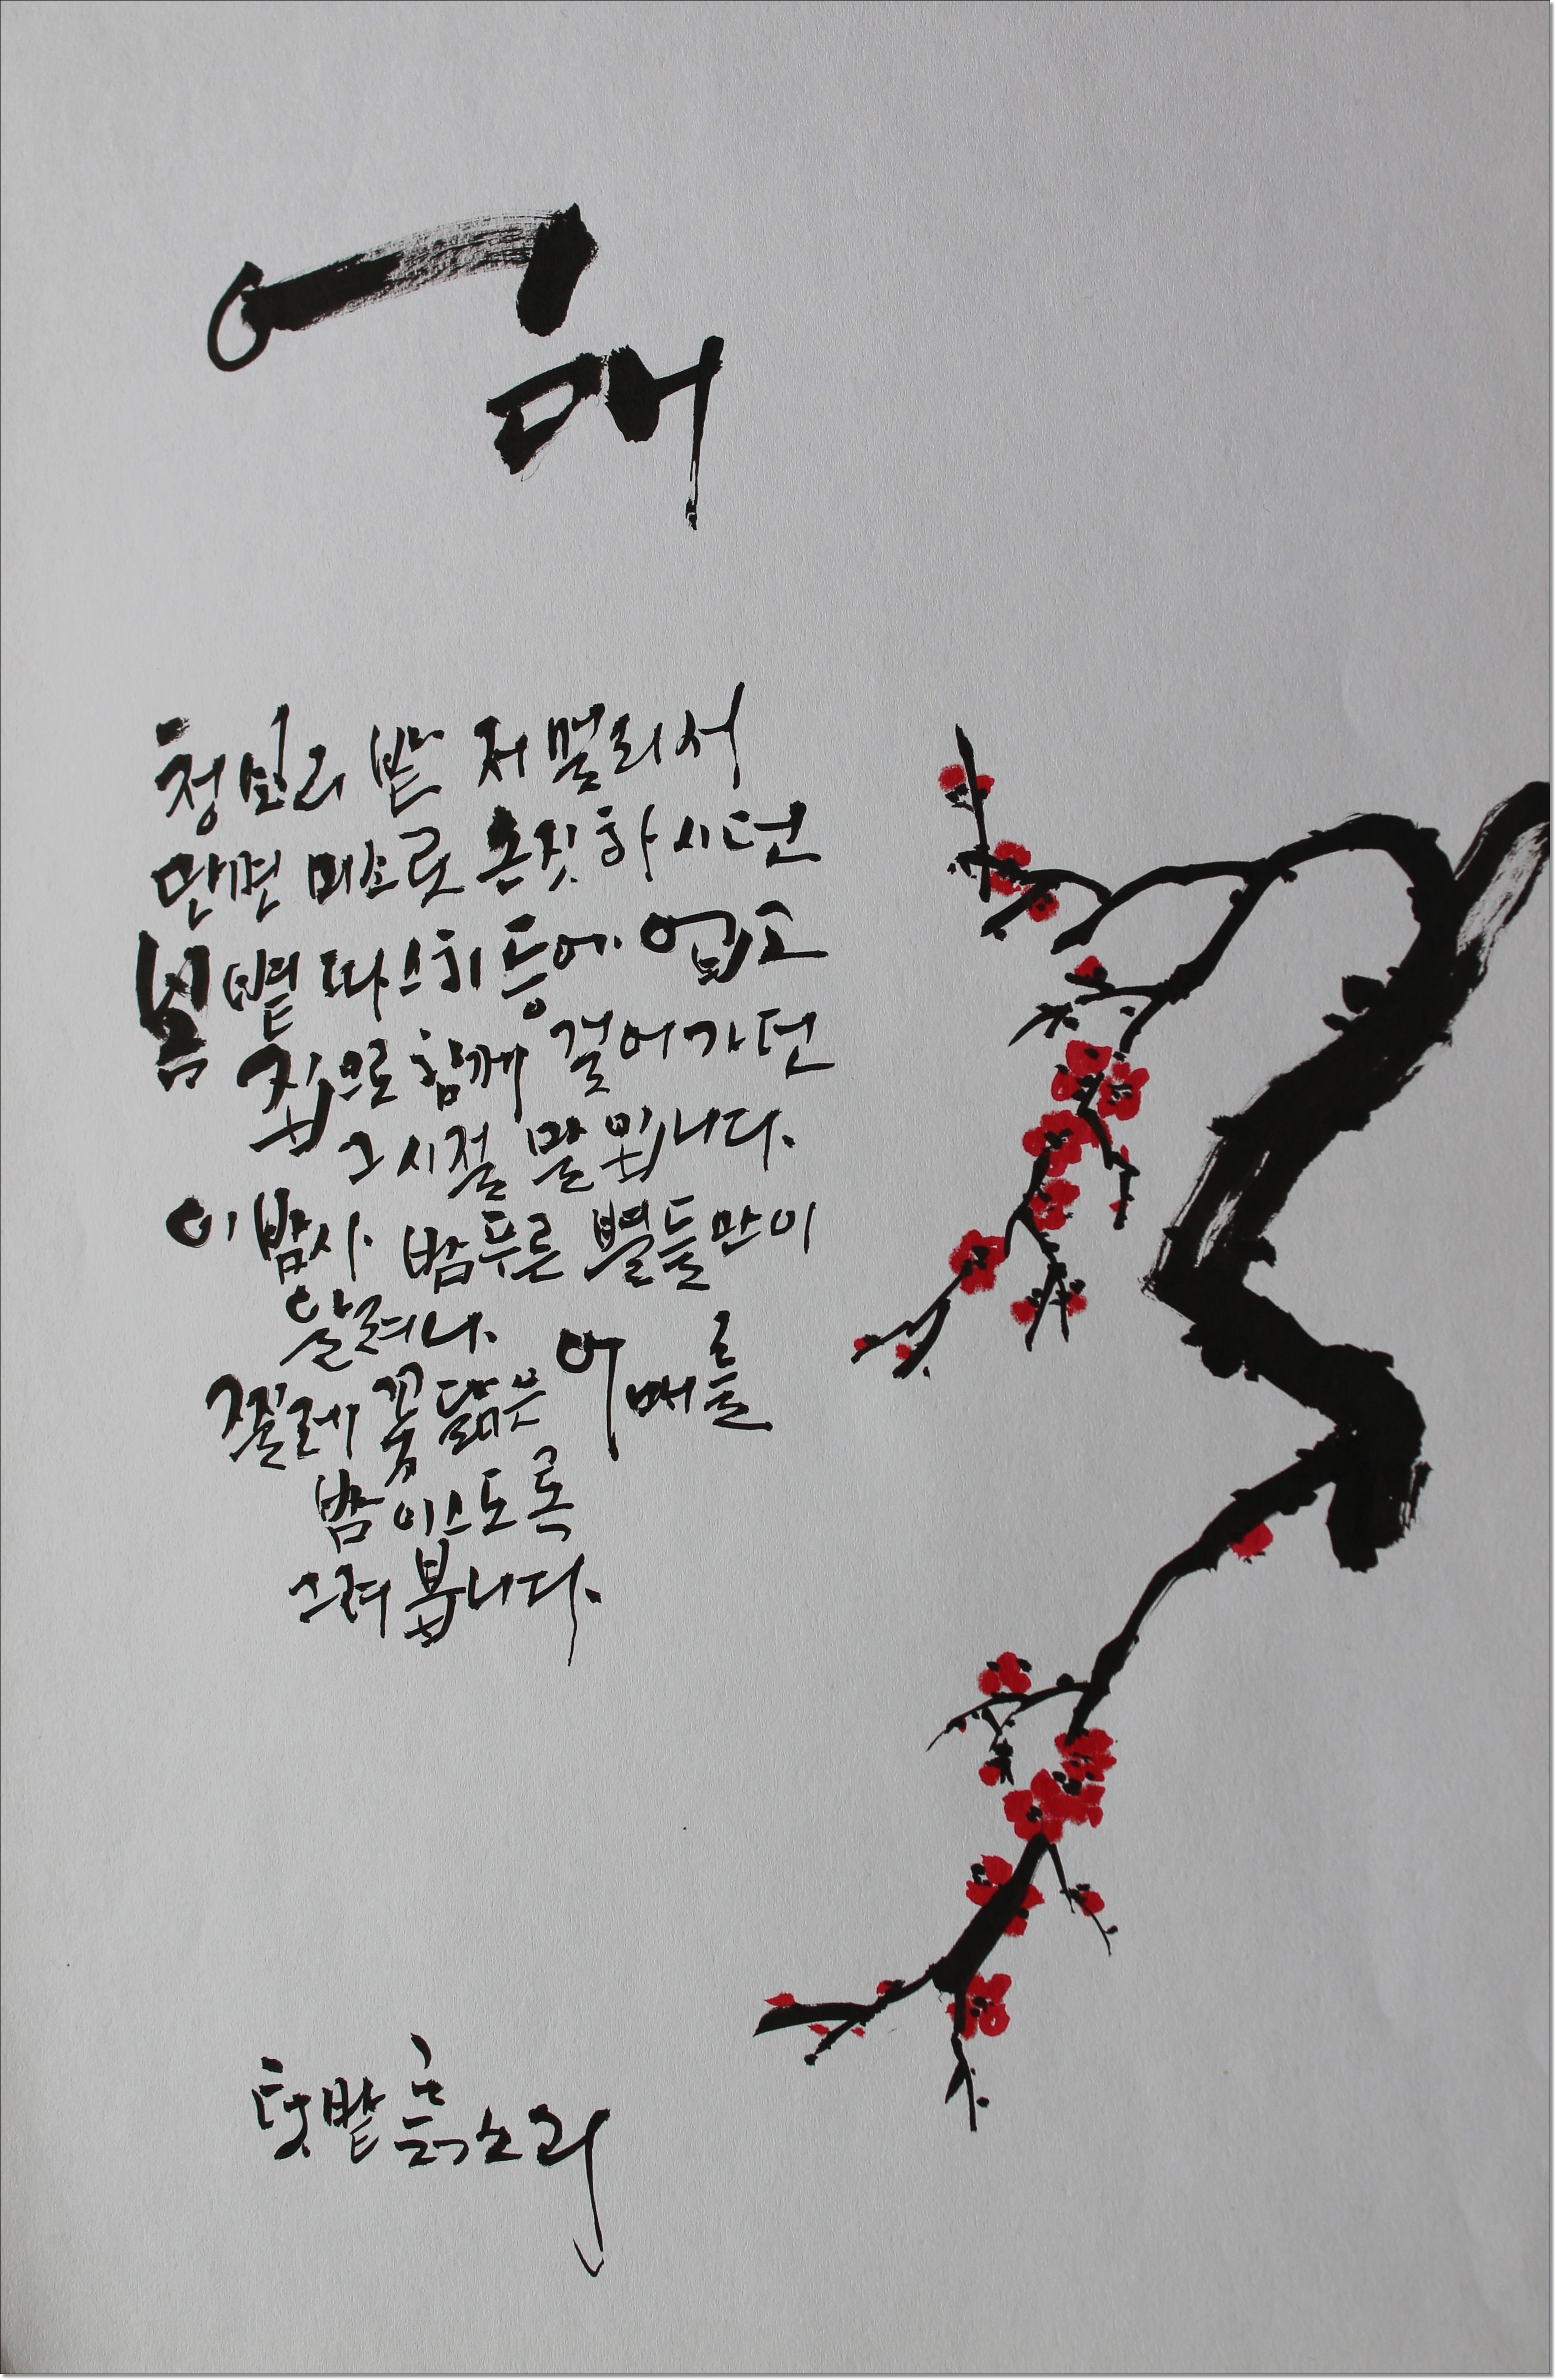 어
매
청보리 밭 저 멀리서
만면 미소로 손짓 하시던
봄볕 따스히 등에 업고
집으로 함께 걸어가던
그 시절 말입니다.
이 밤사 밤푸른 별들만이
알려나.
찔레 꽃 닮은 어매를
밤 이스도록
그려 봅니다.
텃밭 흙소리